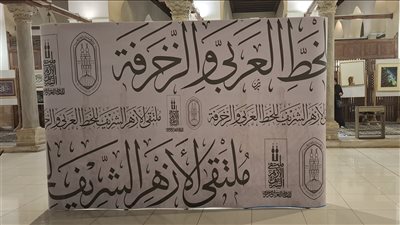 الخط العربي والزخرفة
ملتقى الأزهر الشريف للخط العربي والزخرفة
الأزهر الشريف للخط العربي والزخرفة
ملتقى الأزهر الشريف